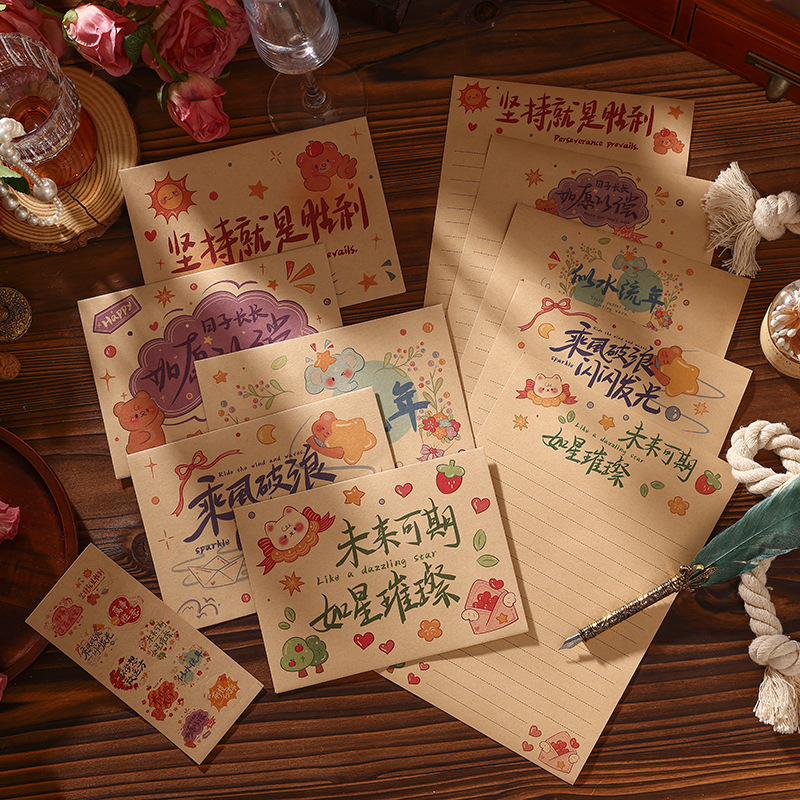 坚持就是胜利
Perseverance prevails.
日子长长
如愿以偿
似水流年
乘风破浪
sparkle
闪闪发光
未来可期
Like a dazzling star
如星璀璨
坚持就是胜利
prevails.
Happy
日子长长
如愿以偿
年
Ride the wind and waves.
乘风破浪
sparkle
未来可期
Like a dazzling star
如星璀璨